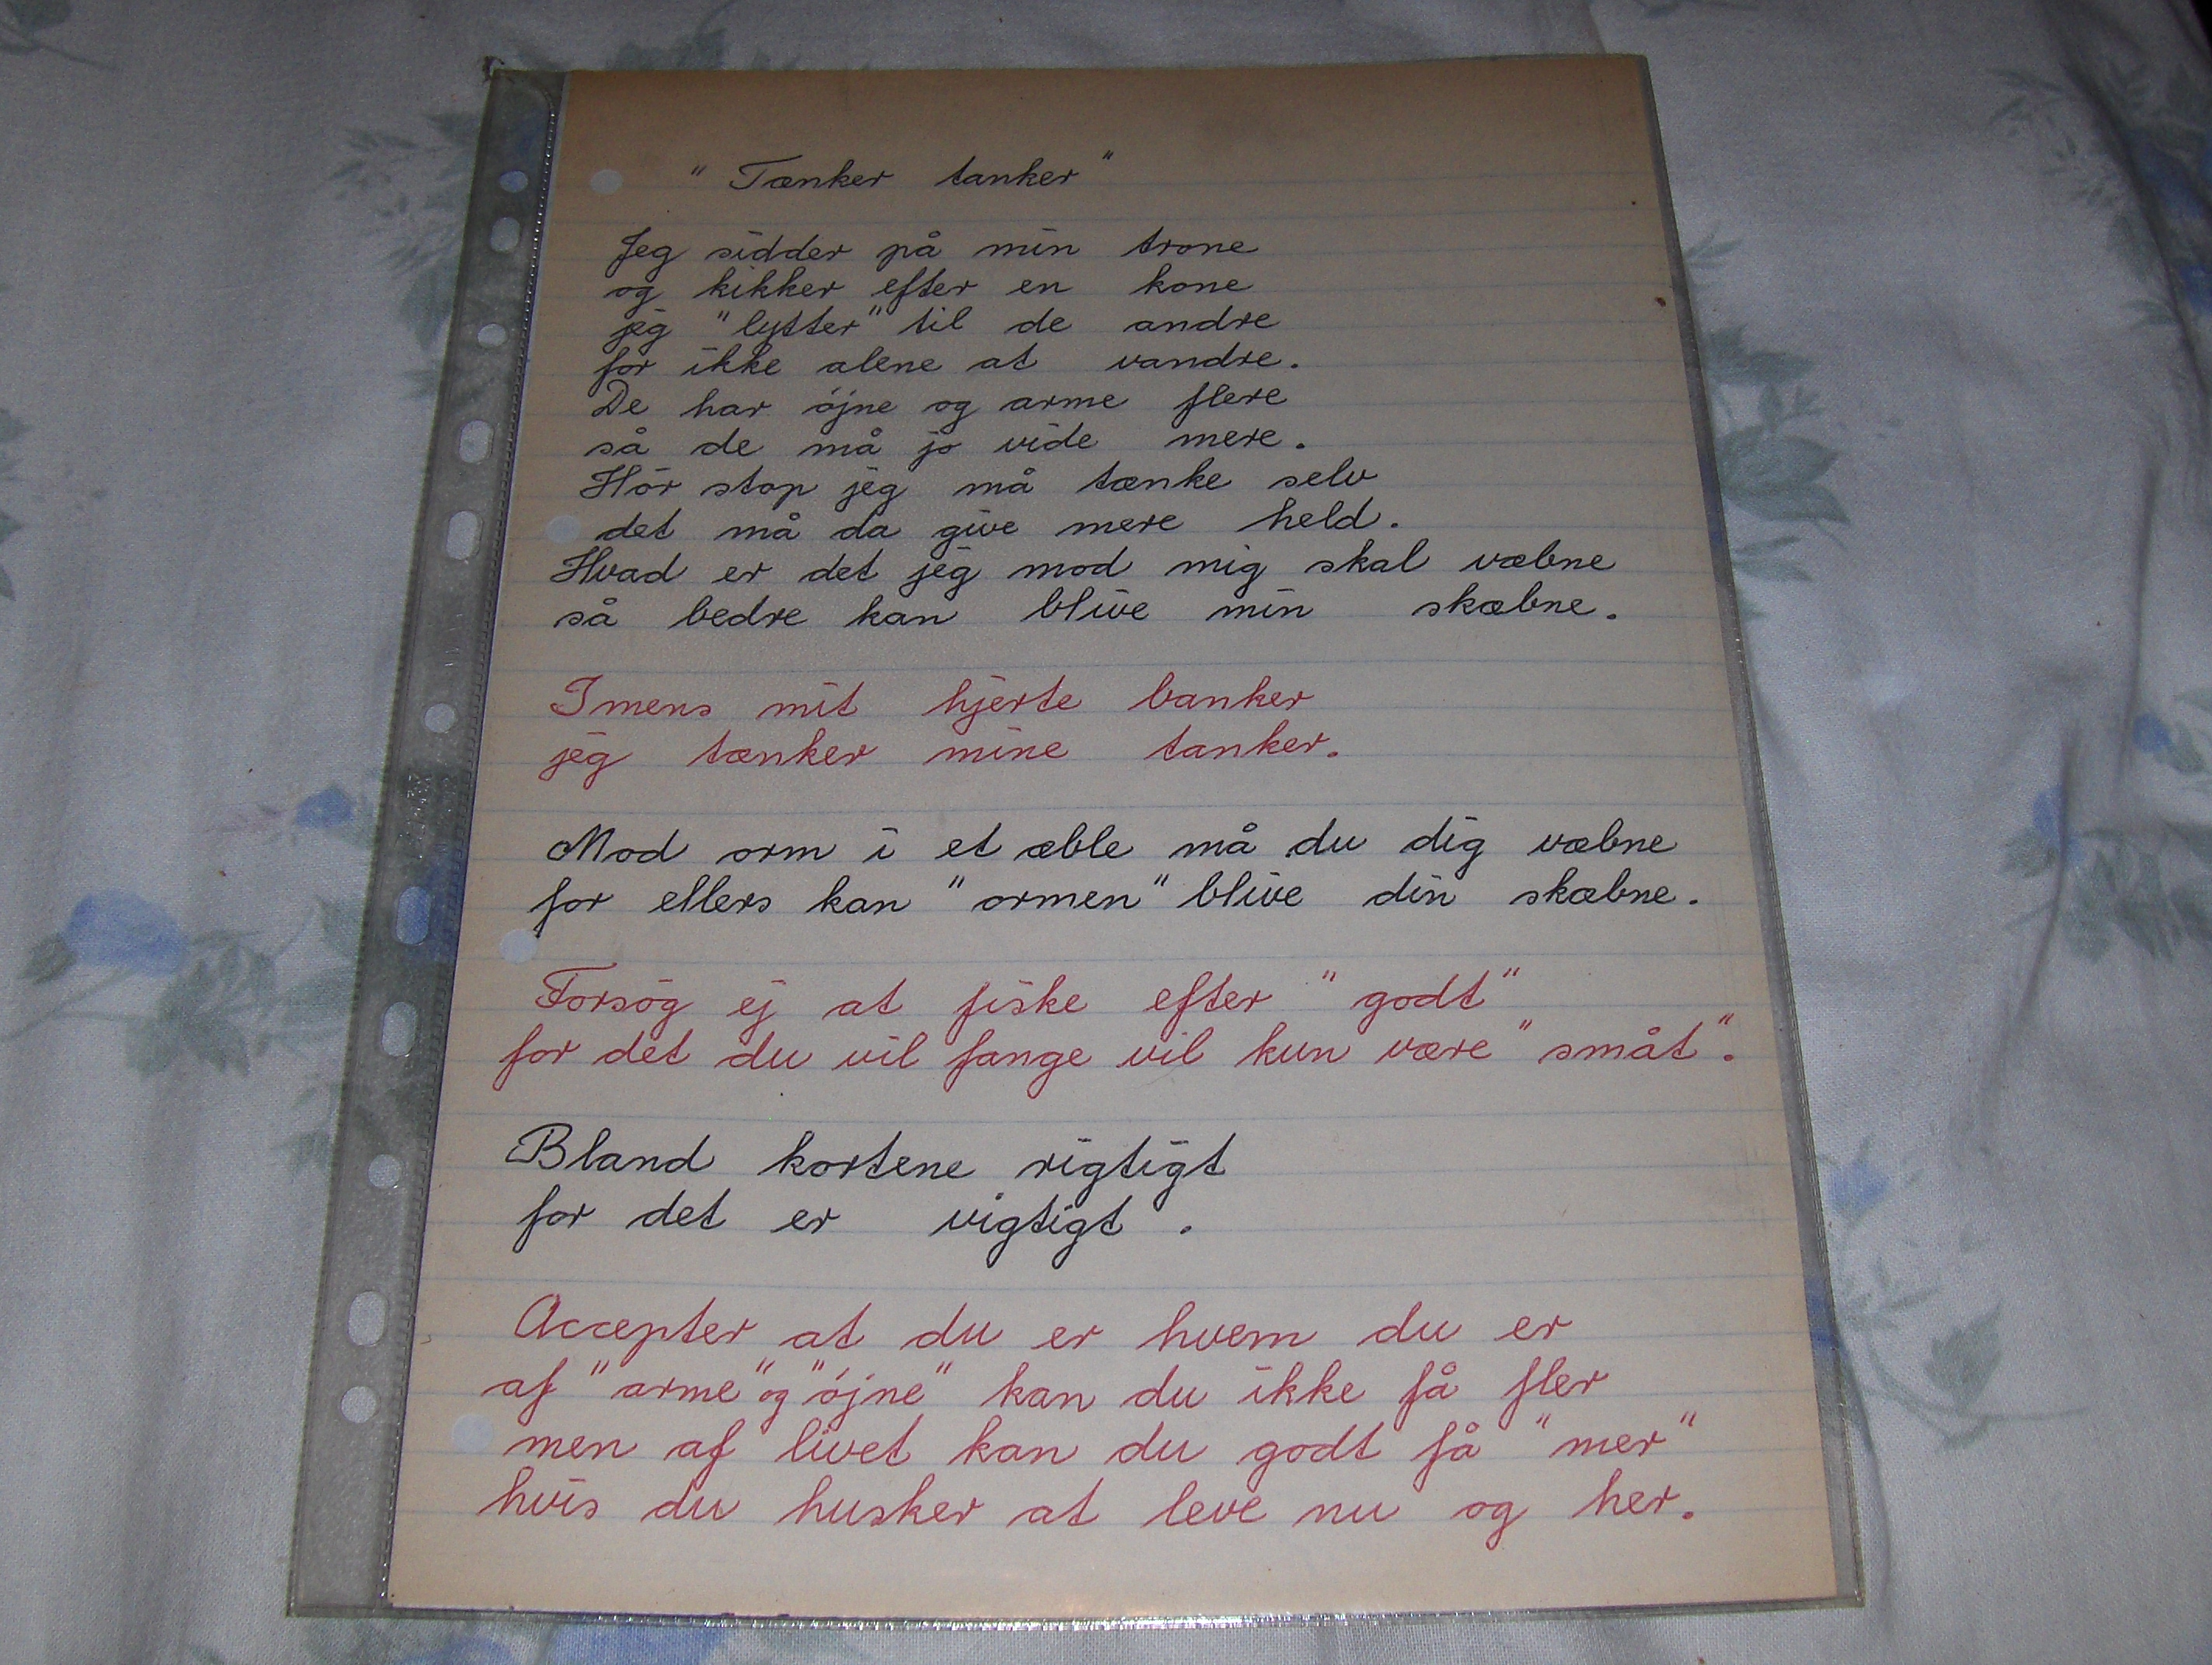 "Tænker tanker"
Jeg sidder på min trone
og kikker efter en kone
jeg "lytter" til de andre
for ikke alene at vandre.
De har öjne og arme flere
så de må jo vide mere.
Hör stop jeg må tænke selv
det må da give mere held.
Hvad er det jeg mod mig skal væbne
så bedre kan blive min skæbne.
Imens mit hjerte banker
jeg tænker mine tanker.
Mod orm i et æble må du dig væbne
for ellers kan "ormen" blive din skæbne.
Forsög ej at fiske efter "godt"
for det du vil fange vil kun være "småt".
Bland kortene rigtigt
for det er vigtigt.
Accepter at du er hvem du er
af "arme" og "öjne" kan du ikke få fler
men af livet kan du godt få "mer"
hvis du husker at leve nu og her.